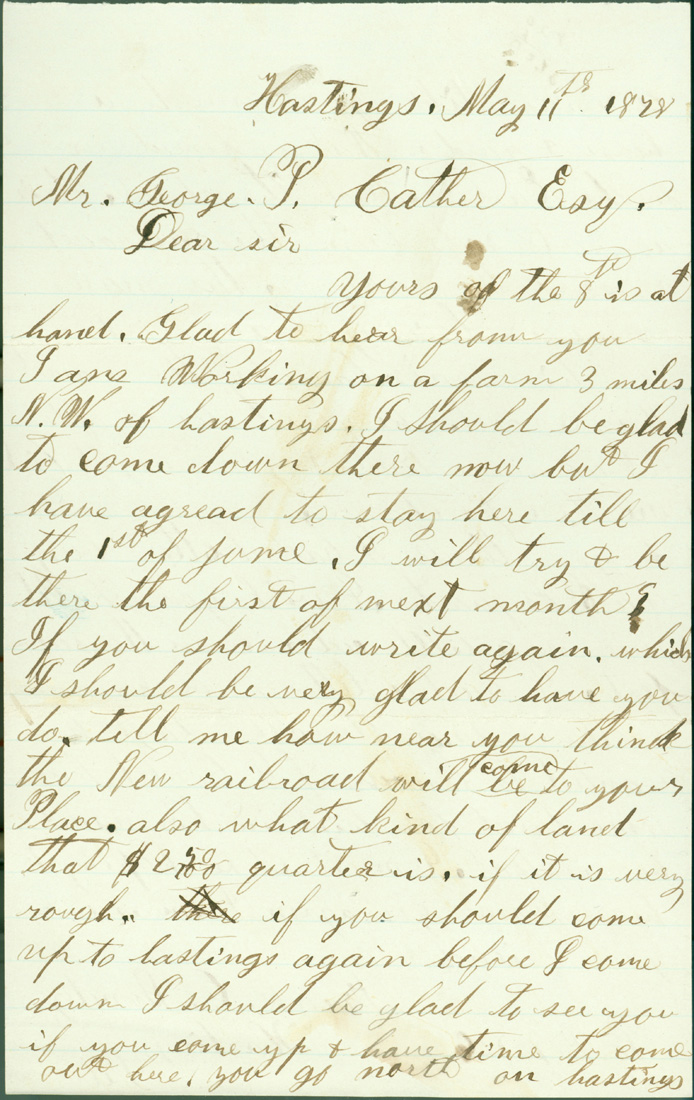 Hastings. May 11th 1878
Mr. George. P. Cather Esq.
Dear sir
yours of the 8th is at
hand. Glad to hear from you
I am Working on a farm 3 miles
N.W. of hastings. I should be glad
to come down there now but I
have agread to stay here till
the 1st of june. I will try & be
there the first of next month
If you should write again. which
I should be very glad to have you
do. tell me how near you think
the New railroad will be come to your
Place. also what kind of land
that $250 quarter is. if it is very
rough. there if you should come
up to hastings again before I come
down I should be glad to see you
if you come up & have time to come
out here, you go north on hastings